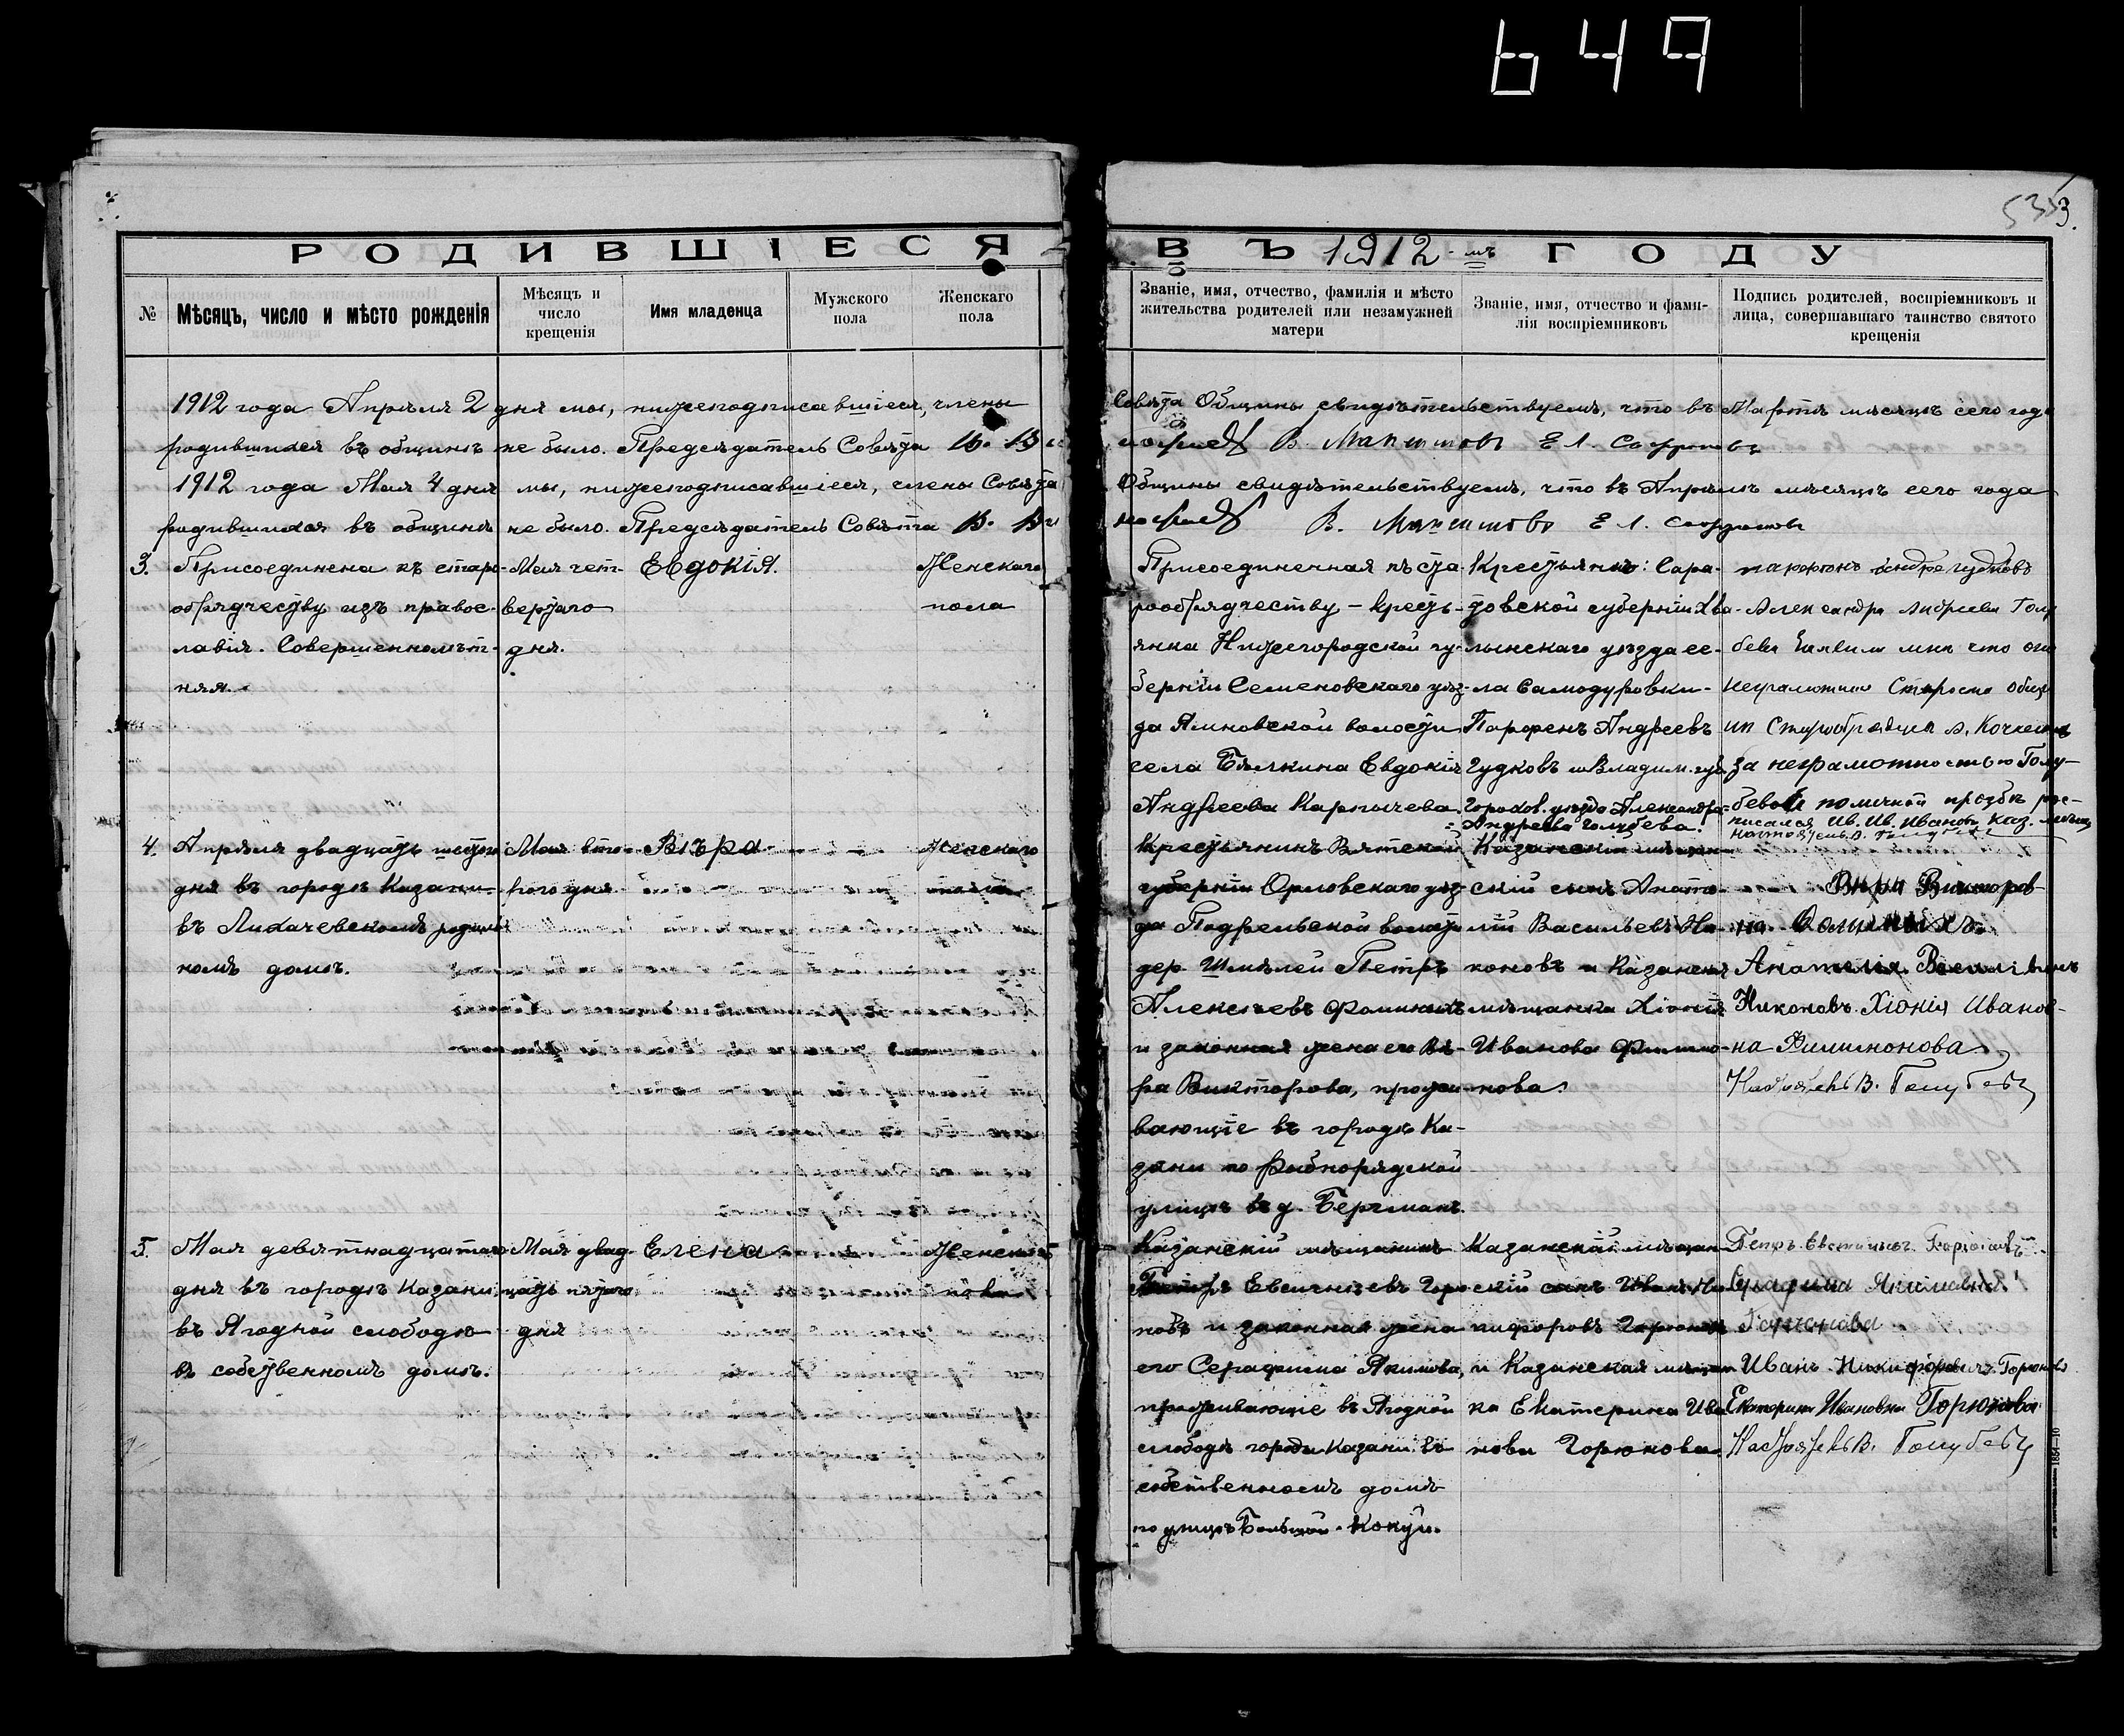 649
533.
РОДИВШІЕСЯ ВЪ 1912-мъ ГОДУ
№
Мѣсяцъ, число и мѣсто рожденія
Мѣсяцъ и число крещенія
Имя младенца
Мужского пола
Женскаго пола
Званіе, имя, отчество, фамилія и мѣсто жительства родителей или незамужней матери
Званіе, имя, отчество и фамилія воспріемниковъ
Подпись родителей, воспріемниковъ и лица, совершавшаго таинство святого крещенія
1912 года Апрѣля 2 дня мы, нижеподписавшіеся, члены Совѣта Общины свидѣтельствуемъ, что въ Мартѣ мѣсяцѣ сего года
родившихся въ общинѣ не было. Предсѣдатель Совѣта В. Максимовъ Е Л. Сафроновъ
1912 года Мая 4 дня мы, нижеподписавшіеся, члены Совѣта Общины свидѣтельствуемъ, что въ Апрѣлѣ мѣсяцѣ сего года
родившихся въ общинѣ не было. Предсѣдатель Совѣта В. Максимовъ Е Л. Сафроновъ
3.
Присоединена къ старо-
обрядчеству изъ правос-
лавія. Совершеннолѣт-
няя.
Мая чет-
вертаго
дня.
Евдокія.
Женскаго
пола
Присоединенная къ ста-
рообрядчеству - кресть-
янка Нижегородской гу-
берніи Семеновскаго уѣз-
да Ямновской волости
села Бѣлкина Евдокія
Андреева Карпычева
Крестьянинъ: Сара-
товской губерніи Хва-
лынскаго уѣзда се-
ла Самодуровки-
Парфенъ Андреевъ
Гудковъ и Владим. губ.
Горохов. уѣзда Александра
Андреева Голубева.
парфенъ андре гудковъ
Александра Андреева Голу
бева Заявила мнѣ что она
неграмотная Староста общи
ны Старообрядцевъ
за неграмотностью Голу-
бевой по личной просьбѣ рос-
писался Ив. Ив. Ивановъ Каз. мѣщ.
Настоятель В. Голубевъ
4.
Апрѣля двадцать шестого
дня въ городѣ Казани
въ Лихачевскомъ родиль-
номъ домѣ.
Мая вто-
рого дня
Вѣра
Женскаго
пола
Крестьянинъ Вятской
губерніи Орловскаго уѣз-
да Подрельской волости
дер. Шмѣлей Петръ
Алексѣевъ Фоминыхъ
и законная жена его Вѣ-
ра Викторова, прожи-
вающіе въ городѣ Ка-
зани по Рыбнорядской
улицѣ въ д. Бергманъ.
Казанскій мѣщан-
скій сынъ Анато-
лій Васильевъ Ни-
коновъ и Казанская
мѣщанка Хіонія
Иванова Филимо-
нова.
Вѣра Викторов-
на Фоминыхъ
Анатолія Васильевичъ
Никоновъ. Хіонія Иванов-
на Филимонова
Настоятель В. Голубевъ
5.
Мая девятнадцатаго
дня въ городѣ Казани,
въ Ягодной слободѣ
въ собственномъ домѣ.
Мая двад-
цать пятаго
дня
Елена
Женскаго
пола
Казанскій мѣщанинъ
Петръ Евсигнѣевъ Горю-
новъ и законная жена
его Серафима Якимова,
проживающіе въ Ягодной
слободѣ города Казани въ
собственномъ домѣ
по улицѣ Большой-Кокуй.
Казанской мѣщан-
скій сынъ Иванъ Ни-
кифоровъ Горюновъ
и Казанская мѣщан-
ка Екатерина Ива-
нова Горюнова.
Петръ Евсигнѣевъ Горюновъ
Серафима Якимовна
Горюнова
Иванъ Никифоровичъ Горюновъ
Екатерина Ивановна Горюнова
Настоятель В. Голубевъ